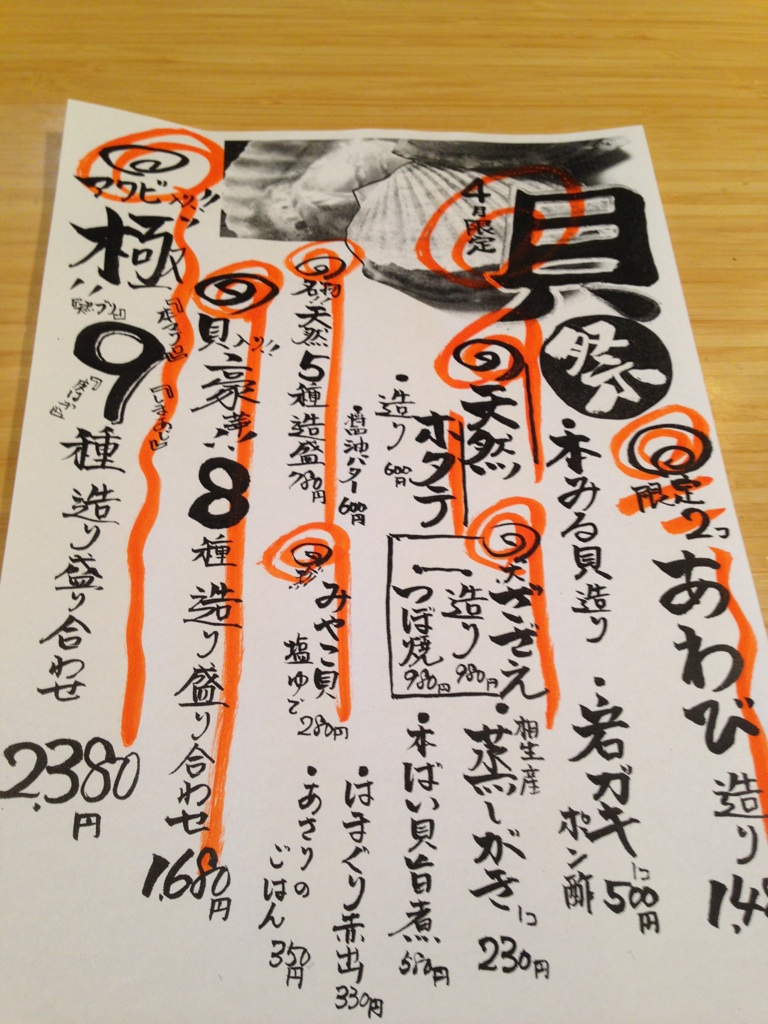 4月限定
貝祭
限定2コ
あわび
造り
本みる貝造り
・岩ガキ
ポン酢
1コ
500円
天然
ホタテ
・造り
600円
・醤油バター
600円
さざえ
造り
980円
つぼ焼
980円
相生産
・蒸しがき
1コ
230円
・本ばい貝旨煮
580円
・はまぐり赤出
330円
・あさりの
ごはん
350円
名物!!
天然
5種造盛
780円
みやこ貝
塩ゆで
280円
貝入り!!
豪華!!
8種造り盛り合わせ
1,680円
アワビ入り!!
極
『しまあじ』
9種造り盛り合わせ
2,380円